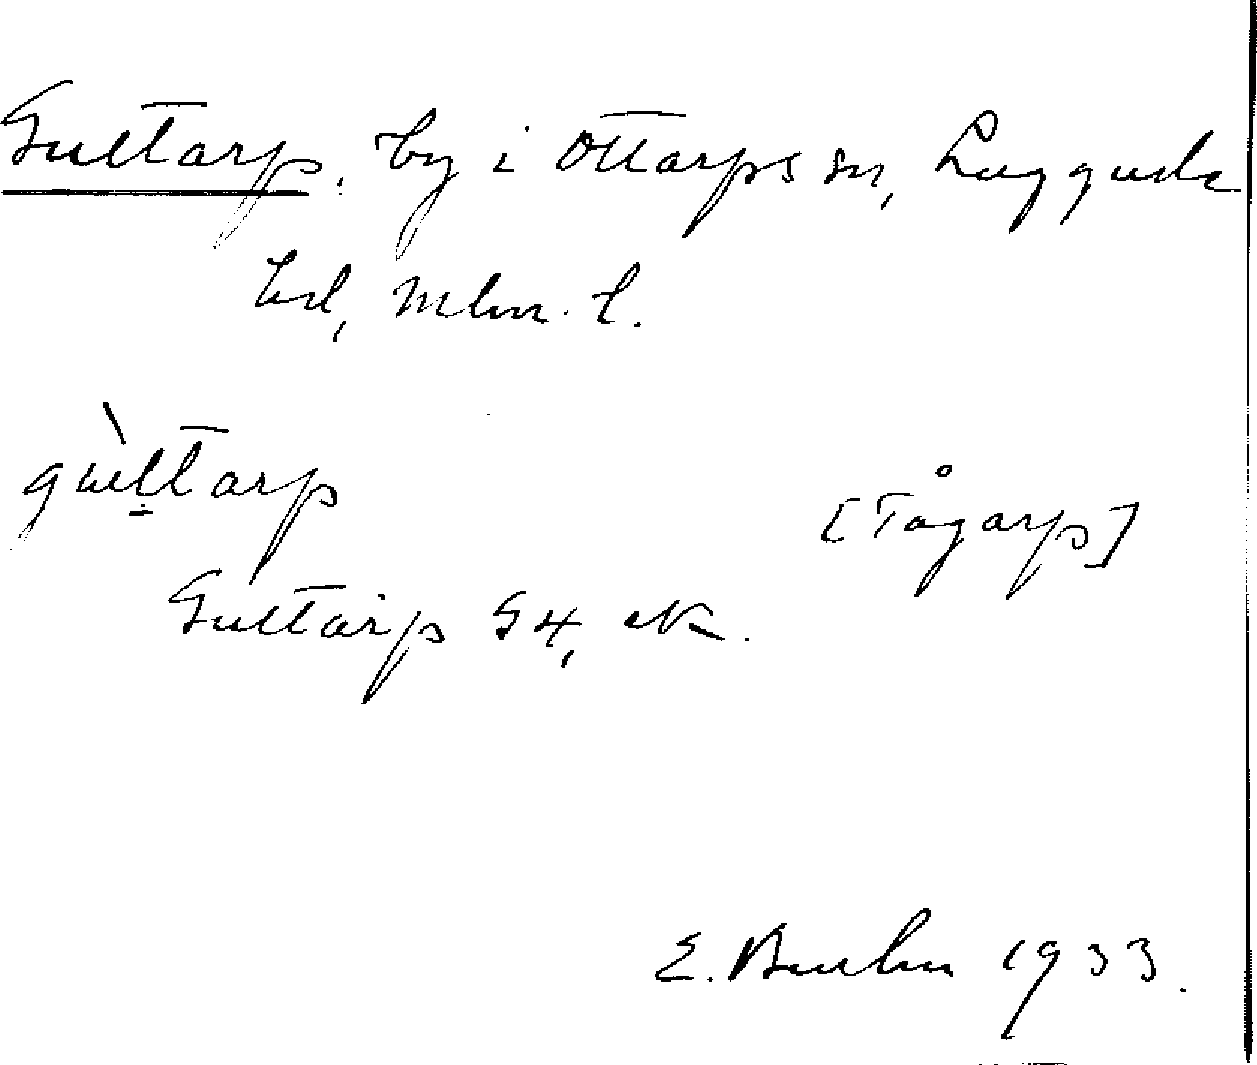 Gulltarp, by i Ottarps sn, Luggude
hd, Mlm. l.
gùltarp
[Tågarp]
Gultarp G4, ek.
E. 1933.